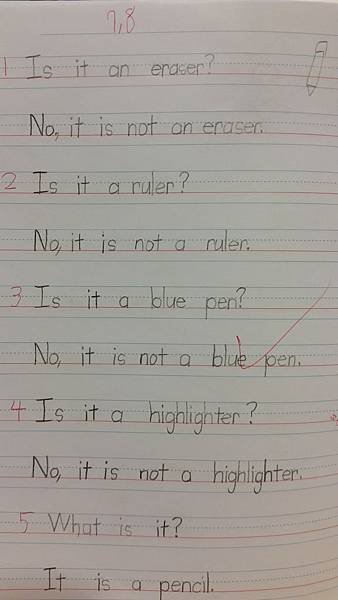 7,8
1 Is it an eraser?
No, it is not an eraser.
2 Is it a ruler?
No, it is not a ruler.
3 Is it a blue pen?
No, it is not a blue pen.
4 Is it a highlighter?
No, it is not a highlighter.
5 What is it?
It is a pencil.